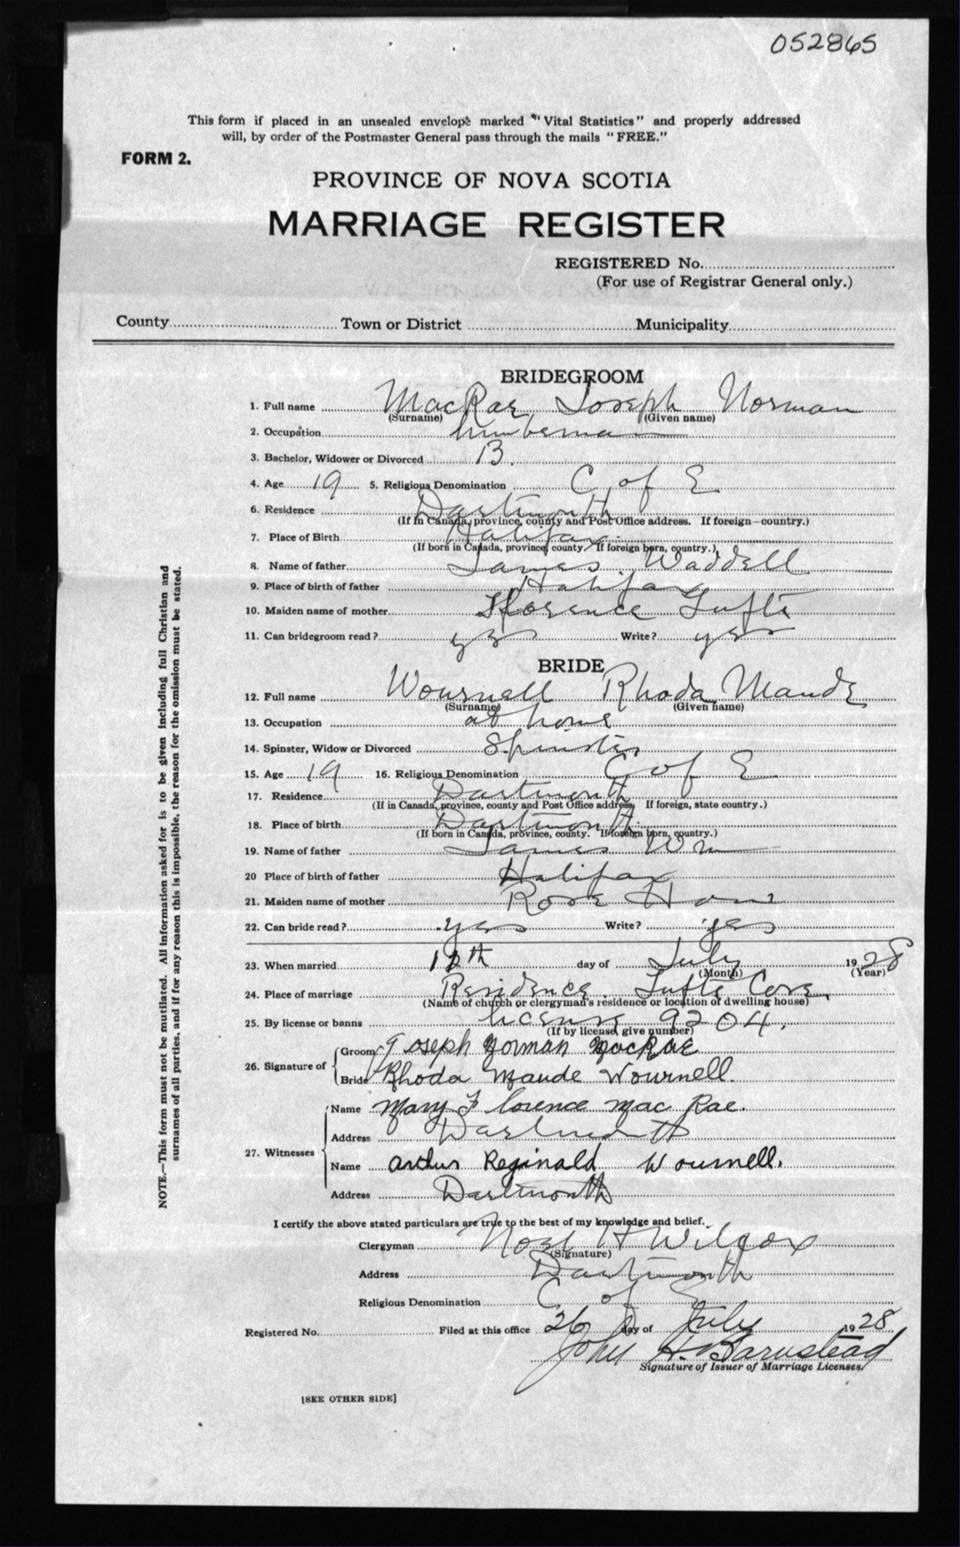 052865
This form if placed in an unsealed envelope marked "Vital Statistics" and properly addressed
will, by order of the Postmaster General pass through the mails "FREE."
FORM 2.
PROVINCE OF NOVA SCOTIA
MARRIAGE REGISTER
REGISTERED No.
(For use of Registrar General only.)
County Town or District Municipality
BRIDEGROOM
1. Full name MacRae Joseph Norman
(Surname) (Given name)
2. Occupation lumberman
3. Bachelor, Widower or Divorced B.
4. Age 19 5. Religious Denomination C of E
6. Residence Dartmouth
(If in Canada, province, county and Post Office address. If foreign—country.)
7. Place of Birth Halifax
(If born in Canada, province, county. If foreign born, country.)
8. Name of father James Waddell
9. Place of birth of father Halifax
10. Maiden name of mother Florence Tufts
11. Can bridegroom read? yes Write? yes
BRIDE
12. Full name Wournell Rhoda Maude
(Surname) (Given name)
13. Occupation at home
14. Spinster, Widow or Divorced Spinster
15. Age 19 16. Religious Denomination C of E
17. Residence Dartmouth
(If in Canada, province, county and Post Office address. If foreign, state country.)
18. Place of birth Dartmouth
(If born in Canada, province, county. If foreign born, country.)
19. Name of father James Wm
20 Place of birth of father Halifax
21. Maiden name of mother Rose
22. Can bride read? yes Write? yes
23. When married day of July 1928
(Month) (Year)
24. Place of marriage Residence Tufts Cove
(Name of church or clergyman's residence or location of dwelling house)
25. By license or banns license 9204.
(If by license, give number)
26. Signature of Groom Joseph Norman MacRae
Bride Rhoda Maude Wournell.
27. Witnesses Name Mary Florence Mac Rae.
Address Dartmouth
Name Arthur Reginald Wournell.
Address Dartmouth
I certify the above stated particulars are true to the best of my knowledge and belief.
Clergyman Noel H Wilcox
(Signature)
Address Dartmouth
Religious Denomination C of E
Registered No. Filed at this office 26 day of July 1928
John H. Barnstead
Signature of Issuer of Marriage Licenses.
[SEE OTHER SIDE]
NOTE.—This form must not be mutilated. All information asked for is to be given including full Christian and
surnames of all parties, and if for any reason this is impossible, the reason for the omission must be stated.